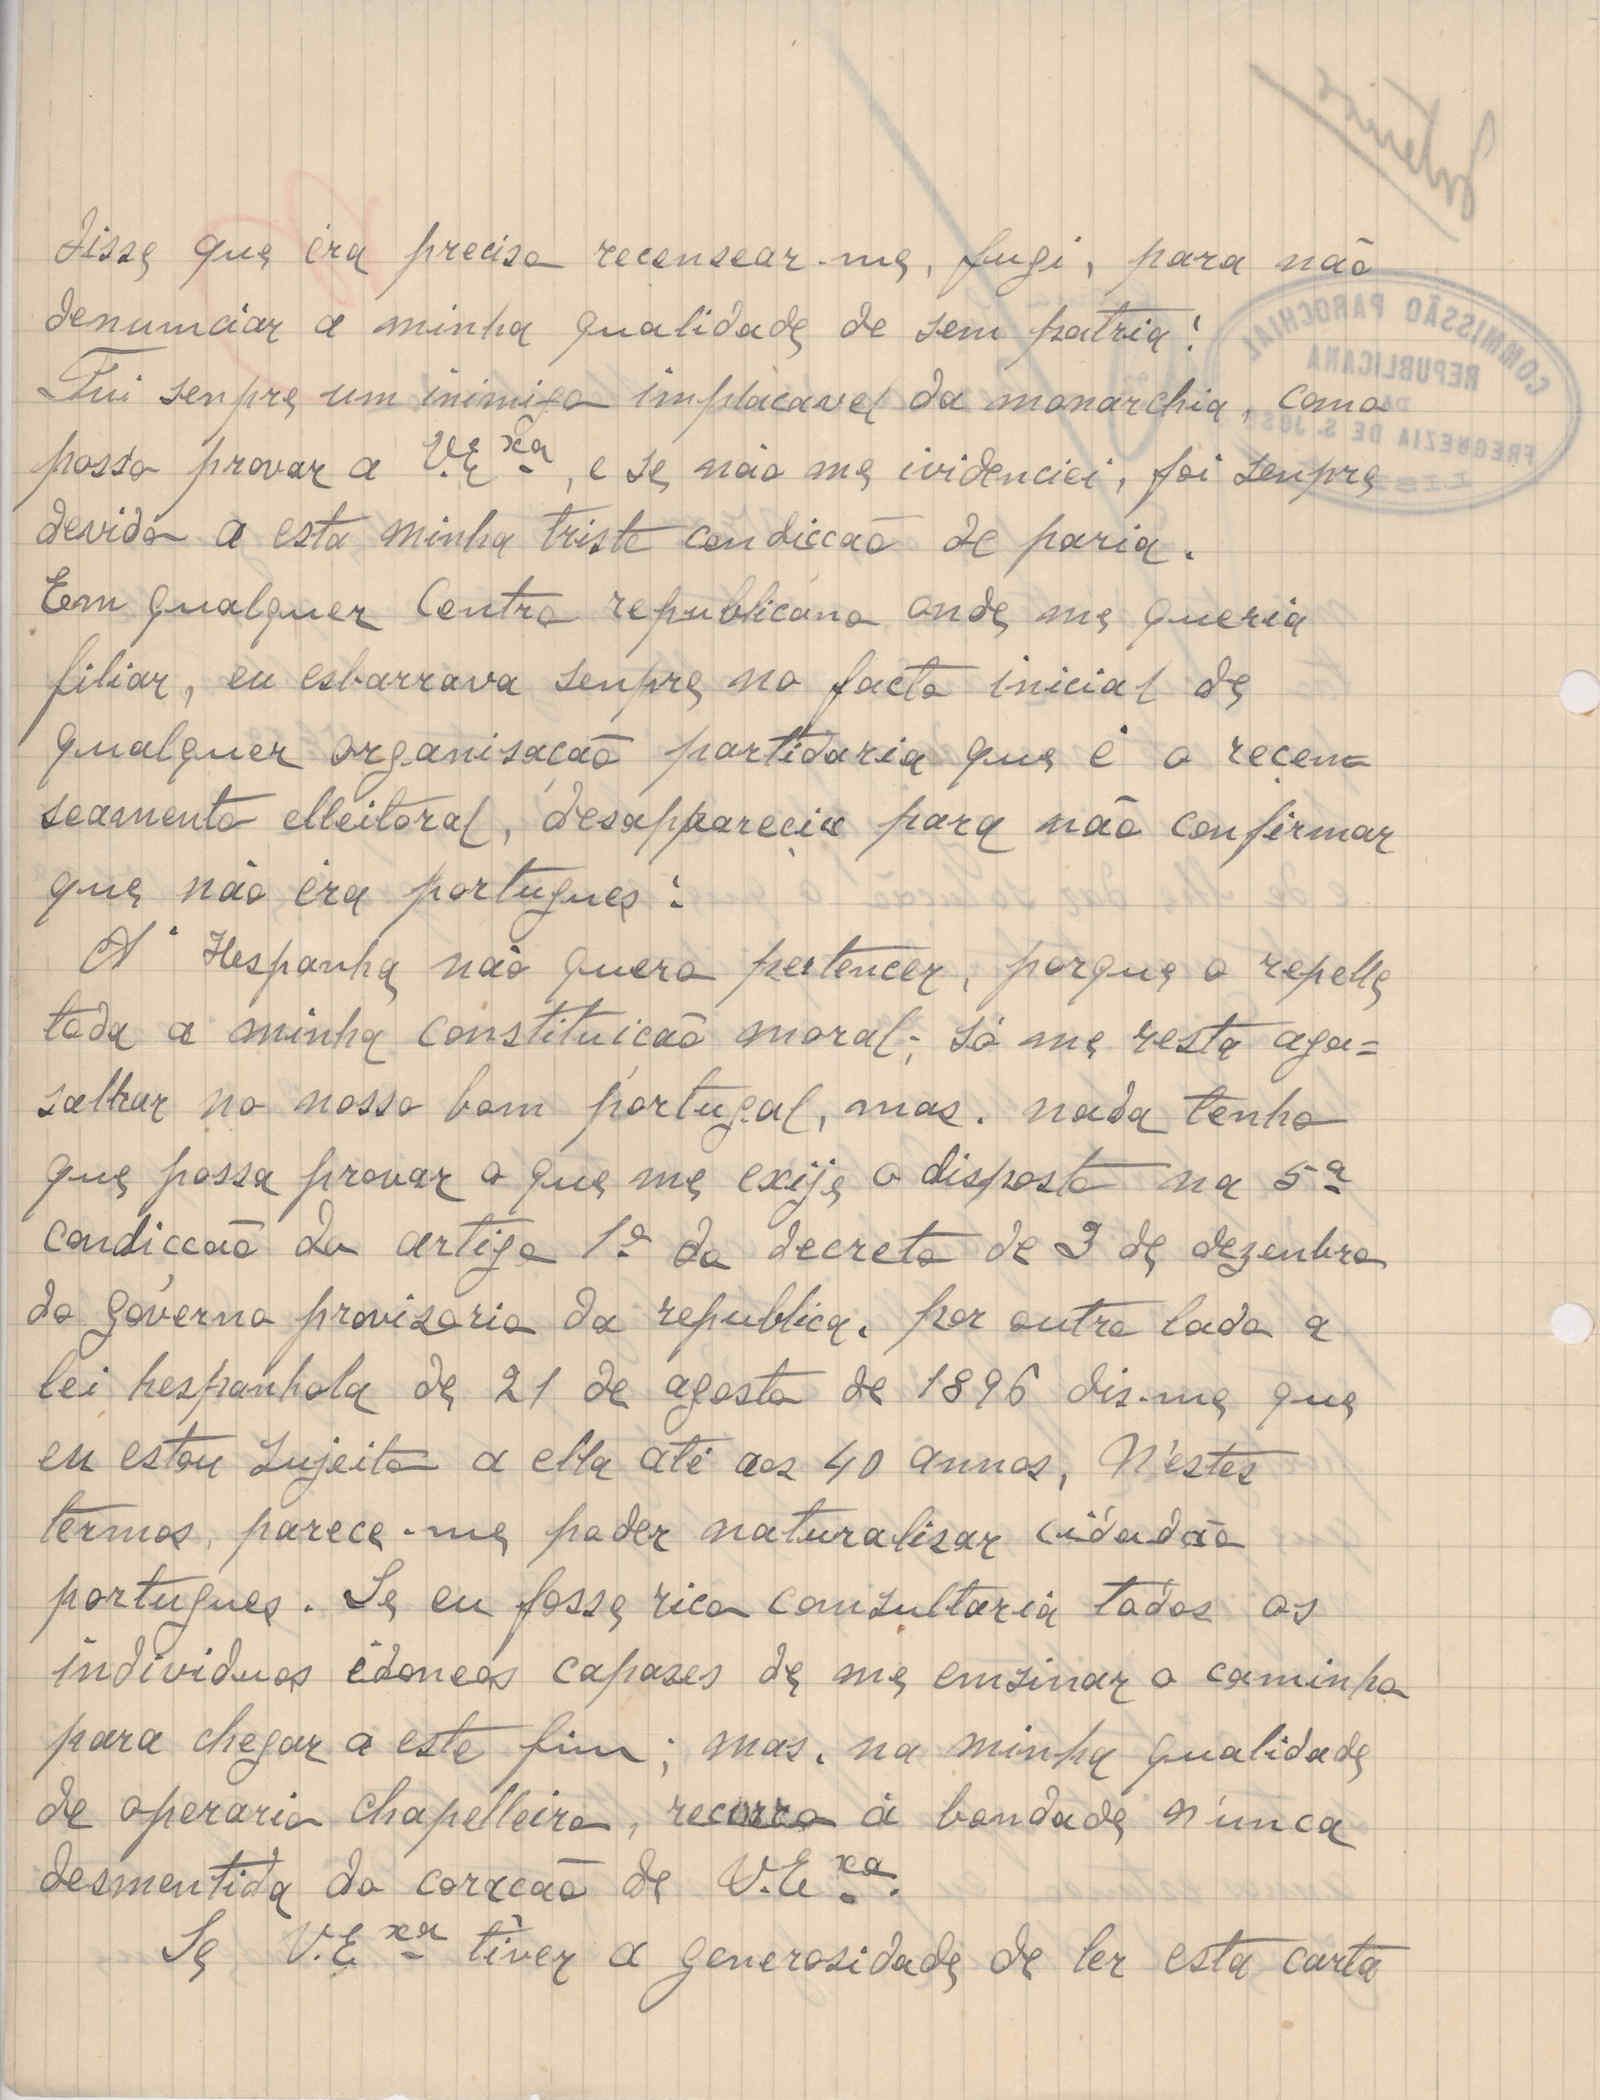 disse que éra preciso recensear-me, fugi, para não
denunciar a minha qualidade de sem patria!
Fui senpre um inimigo implacavel da monarchia, como
posso provar a V.E.xa, e se não me ividenciei, foi senpre
devido a esta minha triste condiccão de paria.
Em qualquer Centro republicano onde me queria
filiar, eu esbarrava senpre no facto inicial de
qualquer organisacão partidaria que é o recen=
seamento elleitoral, desapparecia para não confirmar
que não éra portugues!
A' Hespanha não quero pertencer, porque o repelle
toda a minha constituicão moral; só me resta aga=
salhar no nosso bom portugal, mas. nada tenho
que possa provar o que me exije o disposto na 5ª
condiccão do artigo 1º do decreto de 3 de dezenbro
do góverno provizorio da republica. por outro lado a
lei hespanhola de 21 de agosto de 1896 dis-me que
eu estou sujeito a ella até aos 40 annos, N'estes
termos, parece-me poder naturalisar cidadão
portugues. Se eu fosse rico consultaria todos os
individuos idoneos capases de me ensinar o caminho
para chegar a este fim; mas. na minha qualidade
de operario chapelleiro, recorro á bondade nunca
desmentida do coracão de V.E.xa.
Se V.E.xa tiver a generosidade de ler esta carta
COMMISSÃO PAROCHIAL
REPUBLICANA
DA
FREGUEZIA DE S. JOSÉ